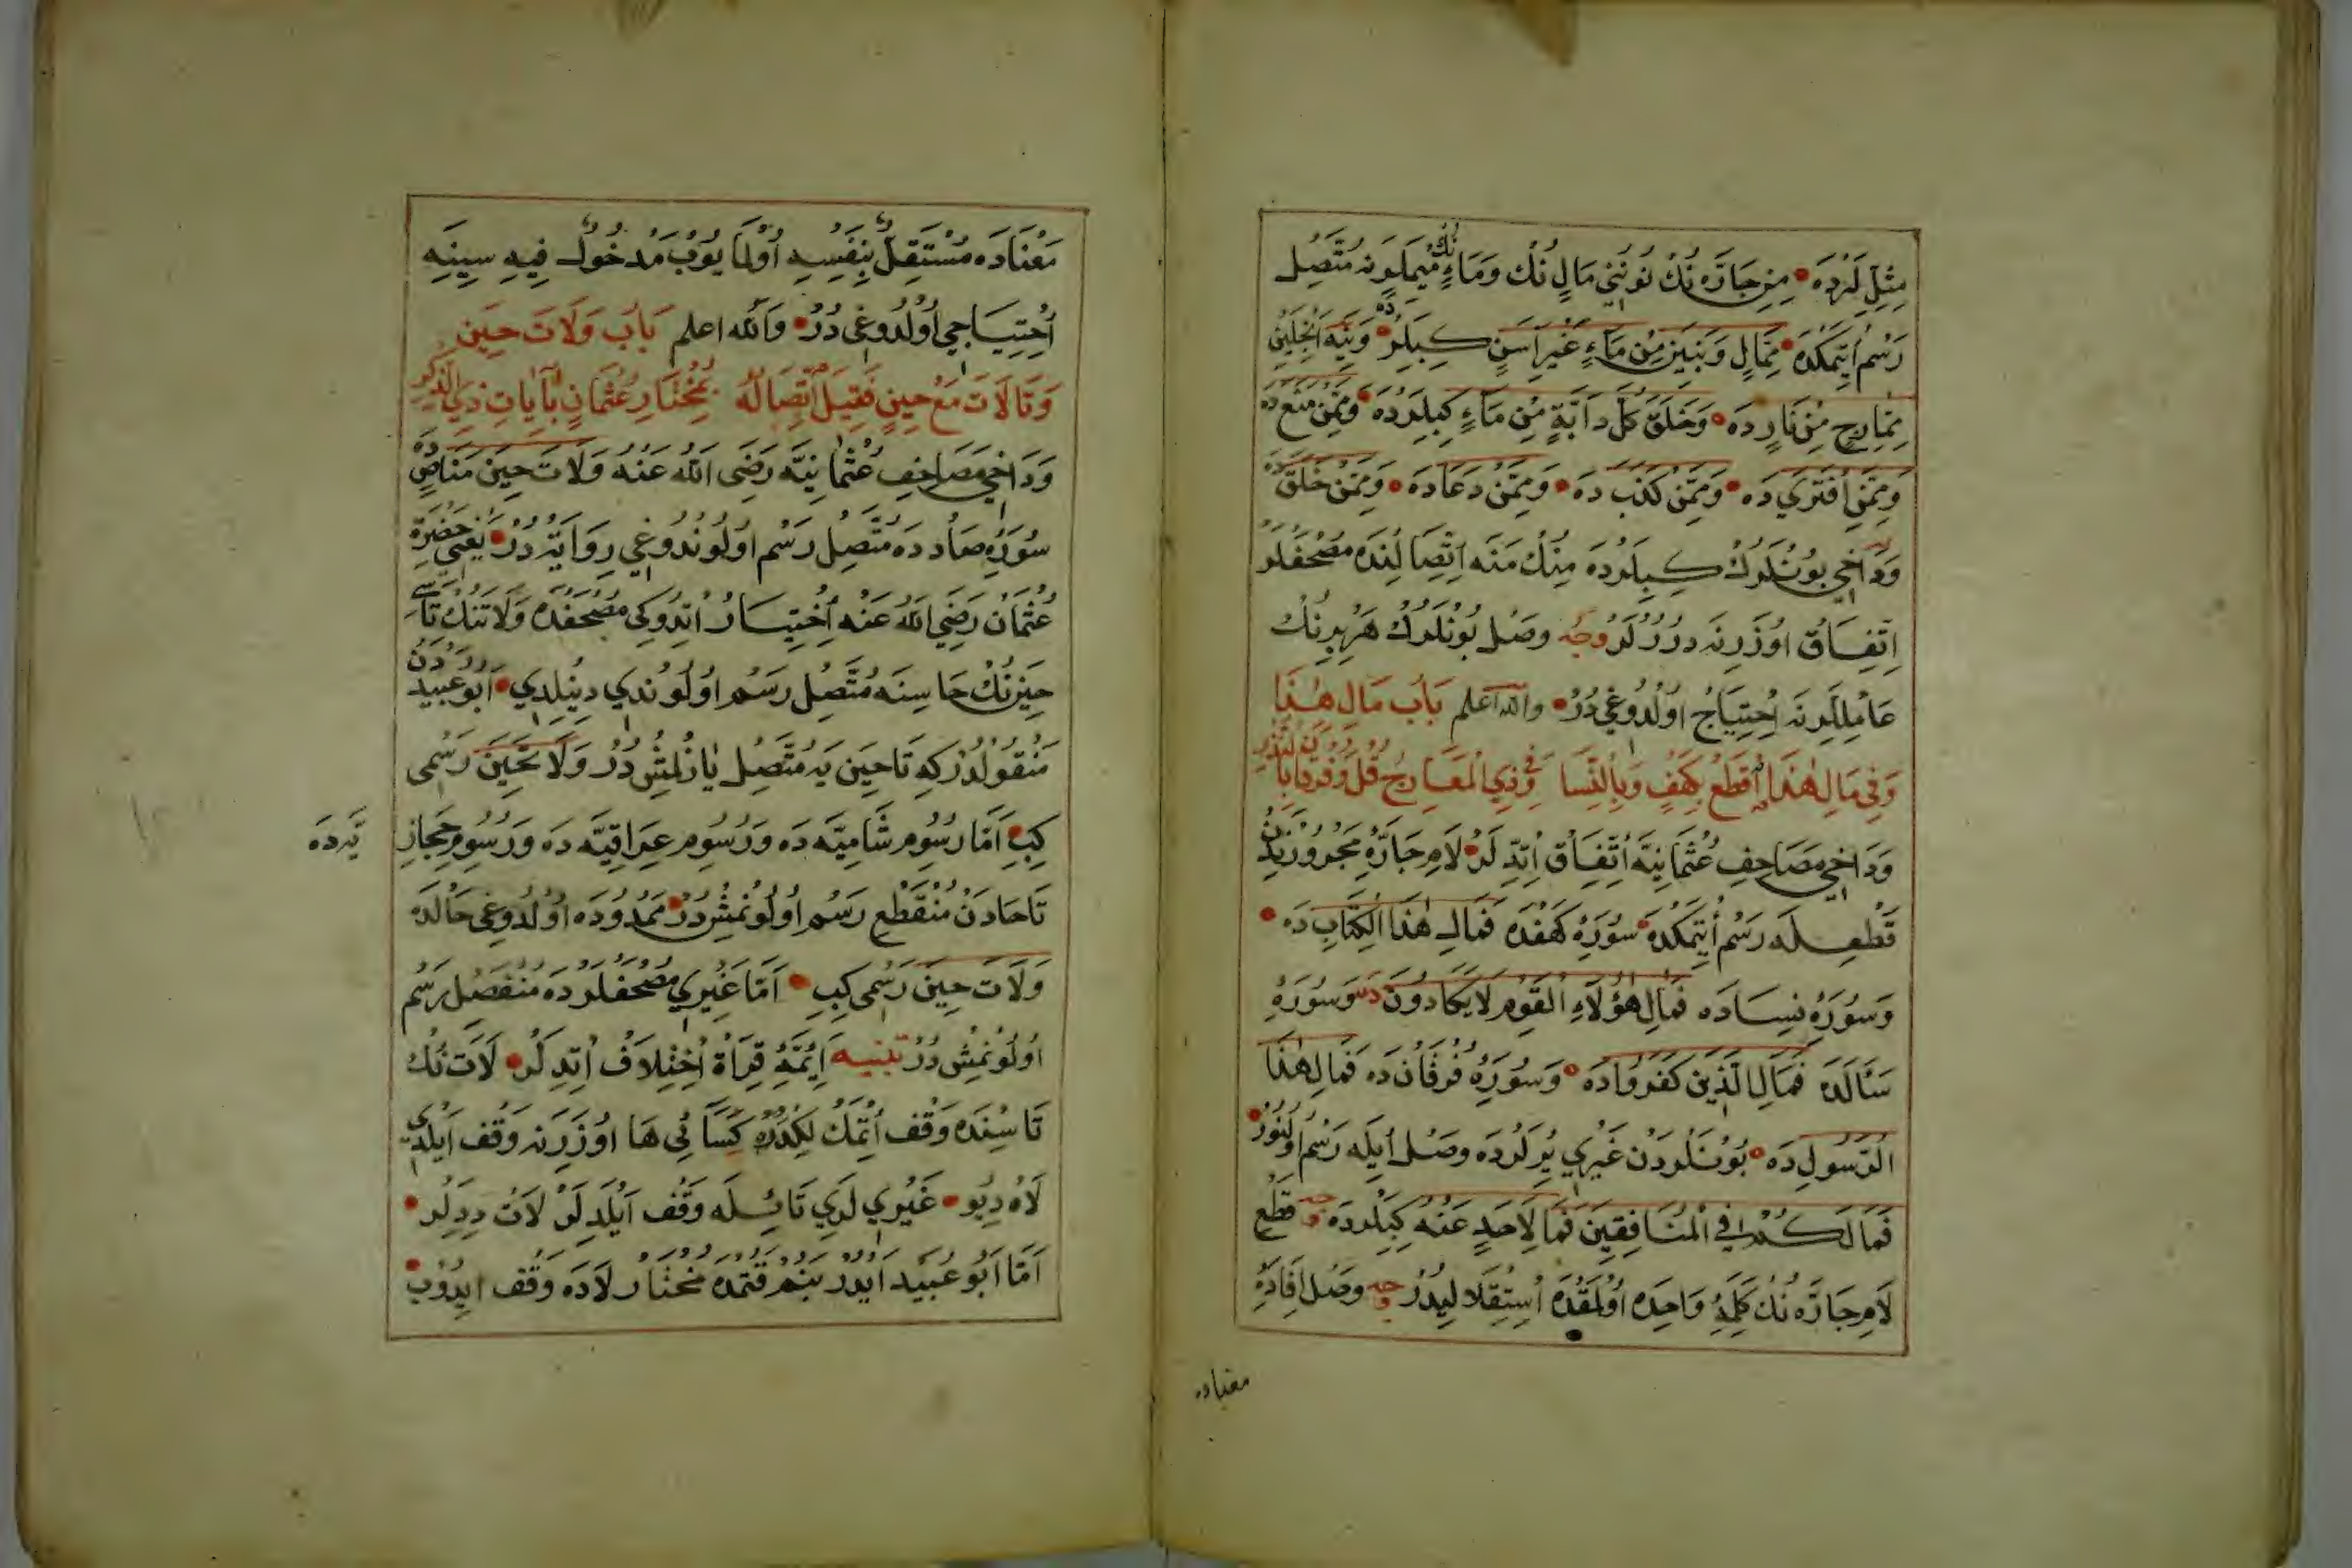 مِثْلِ لَرْدَه مِنِ جَارَّه نُكْ نُونُنِي مَالِ نُكْ وَمَاءِ نُكْ مِيمْلَرِنَه مُتَّصِلْ
رَسْم اِتْمَكْدَه مِمَّالٍ وَبَنِينَ مِن مَاءٍ غَيْرِ اٰسِنٍ كِبِيلَرْدَه وَيَنَه اٰنْجِلَيِنْ
مِمَّارِجٍ مِنْ نَارٍ دَه وَخَلَقَ كُلَّ دَابَّةٍ مِنْ مَاءٍ كِبِيلَرْدَه وَمِمَّنْ مَنَعَ دَه
وَمِمَّنِ افْتَرٰي دَه وَمِمَّنْ كَذَبَ دَه وَمِمَّنْ دَعَا دَه وَمِمَّنْ خَلَقَ دَه
وَدَاخِي بُونْلَرُكْ كِبِيلَرْدَه مِنُكْ مَنَه اِتِّصَالِنْدَه مُصْحَفْلَرْ
اِتِّفَاقْ اوُزَرِنَه دُرُرْلَرْ وَجْه وَصْلْ بُونْلَرُكْ هَرْبِرِنُكْ
عَامِلْلَرِنَه اِحْتِيَاجْ اُولْدُوغِي دُرْ وَاللهُ اَعْلَم بَابُ مَالِ هٰذَا
وَفِي مَالِ هٰذَا اقْطَعْ بِكَهْفٍ وَبِالنِّسَا وَفِي ذِي الْمَعَارِجْ قُلْ وَفُرْقَانِ لِتُنْذِرَ
وَدَاخِي مَصَاحِفِ عُثْمَانِيَّه اِتِّفَاقْ اِتْدِلَرْ لَامِ جَارَّه مَجْرُورِنْدَنْ
قَطْعِلَه رَسْم اِتْمَكْدَه سُورَهِٔ كَهْفْدَه فَمَالِ هٰذَا الْكِتَابِ دَه
وَسُورَهِٔ نِسَادَه فَمَالِ هٰؤُلَاءِ الْقَوْمِ لَا يَكَادُونَ دَه وَسُورَهِٔ
سَئَالَدَه فَمَالِ الَّذِينَ كَفَرُوا دَه وَسُورَهِٔ فُرْقَانْدَه فَمَالِ هٰذَا
الرَّسُولِ دَه بُونْلَرْدَنْ غَيْرِي يَرْلَرْدَه وَصْلْ اِيلَه رَسْم اُولُنُورْ
فَمَا لَكُمْ فِي الْمُنَافِقِينَ فَمَا لِاَحَدٍ عِنْدَهُ كِبِيلَرْدَه وَجْه قَطْعْ
لَامِ جَارَّه نُكْ كَلِمَهِٔ وَاحِدَه اُولْمَقْدَه اِسْتِقْلَالِيدُرْ وَجْه وَصْلْ اِفَادَهِٔ
معناده
مَعْنَادَه مُسْتَقِلٌّ بِنَفْسِهِ اُولْمَايُوبْ مَدْخُولٌ فِيهِ سِينَه
اِحْتِيَاجِي اُولْدُوغِي دُرْ وَاللهُ اَعْلَم بَابُ وَلَاتَ حِينَ
وَتَا لَاتَ مَعْ حِينٍ فَقِيلَ اتِّصَالُهُ بِمُخْتَارِ عُثْمَانٍ بِاٰيَاتِ ذِي الذِّكْرِ
وَدَاخِي مَصَاحِفِ عُثْمَانِيَّه رَضِيَ اللهُ عَنْهُ وَلَاتَ حِينَ مَنَاصٍ دَه
سُورَهِٔ صَاددَه مُتَّصِلْ رَسْم اُولُونْدُوغِي رِوَايَتْدُرْ يَعْنِي حَضْرَتِ
عُثْمَانْ رَضِيَ اللهُ عَنْهُ اِخْتِيَارْ اِتْدُوكِي مُصْحَفْدَه وَلَاتَنُكْ تَاسِي
حِينُكْ حَاسِنَه مُتَّصِلْ رَسْم اُولُونْدِي دِينِلْدِي اَبُو عُبَيْدْدَنْ
مَنْقُولْدُرْكِه تَا حِينَ يَه مُتَّصِلْ يَازِلْمِشْدُرْ وَلَا تَحِينَ رَسْمِي
كِبِي اَمَّا رُسُومِ شَامِيَّه دَه وَرُسُومِ عِرَاقِيَّه دَه وَرُسُومِ حِجَازِ
يَّه دَه
تَا حَادَنْ مُنْقَطِعْ رَسْم اُولُونْمِشْدُرْ مَمْدُودَه اُولْدُوغِي حَالْدَه
وَلَاتَ حِينَ رَسْمِي كِبِي اَمَّا غَيْرِي مُصْحَفْلَرْدَه مُنْفَصِلْ رَسْم
اُولُونْمِشْ دُرْ تَنْبِيه اَئِمَّهِٔ قِرَاَةْ اِخْتِلَافْ اِتْدِلَرْ لَاتَ نُكْ
تَاسِنْدَه وَقْف اِتْمَكْلِكْدَه كِسَائِي هَا اوُزَرِنَه وَقْف اَيْلَدِي
لَاهْ دِيُو غَيْرِي لَرِي تَائِلَه وَقْف اَيْلَدِلَرْ لَاتْ دِدِلَرْ
اَمَّا اَبُو عُبَيْد اَيْدُرْ بَنُمْ قَتِمْدَه مُخْتَارْ لَادَه وَقْف اِيدُوبْ